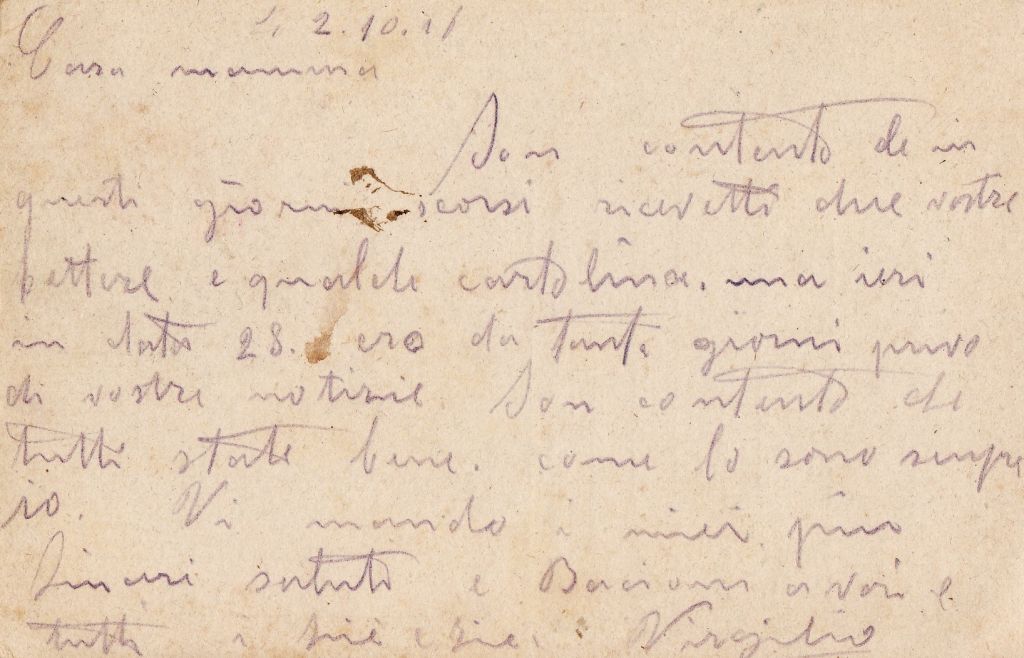 2.10.
Cara mamma
Son contento che in
questi giorni scorsi ricevetti due vostre
lettere e qualche cartolina. una ieri
in data 28. ero da tanti giorni privo
di vostre notizie Son contento che
tutti state bene. come lo sono sempre
io. Vi mando i miei più
sinceri saluti e Bacioni a voi e
tutti i zii e zie. Virgilio